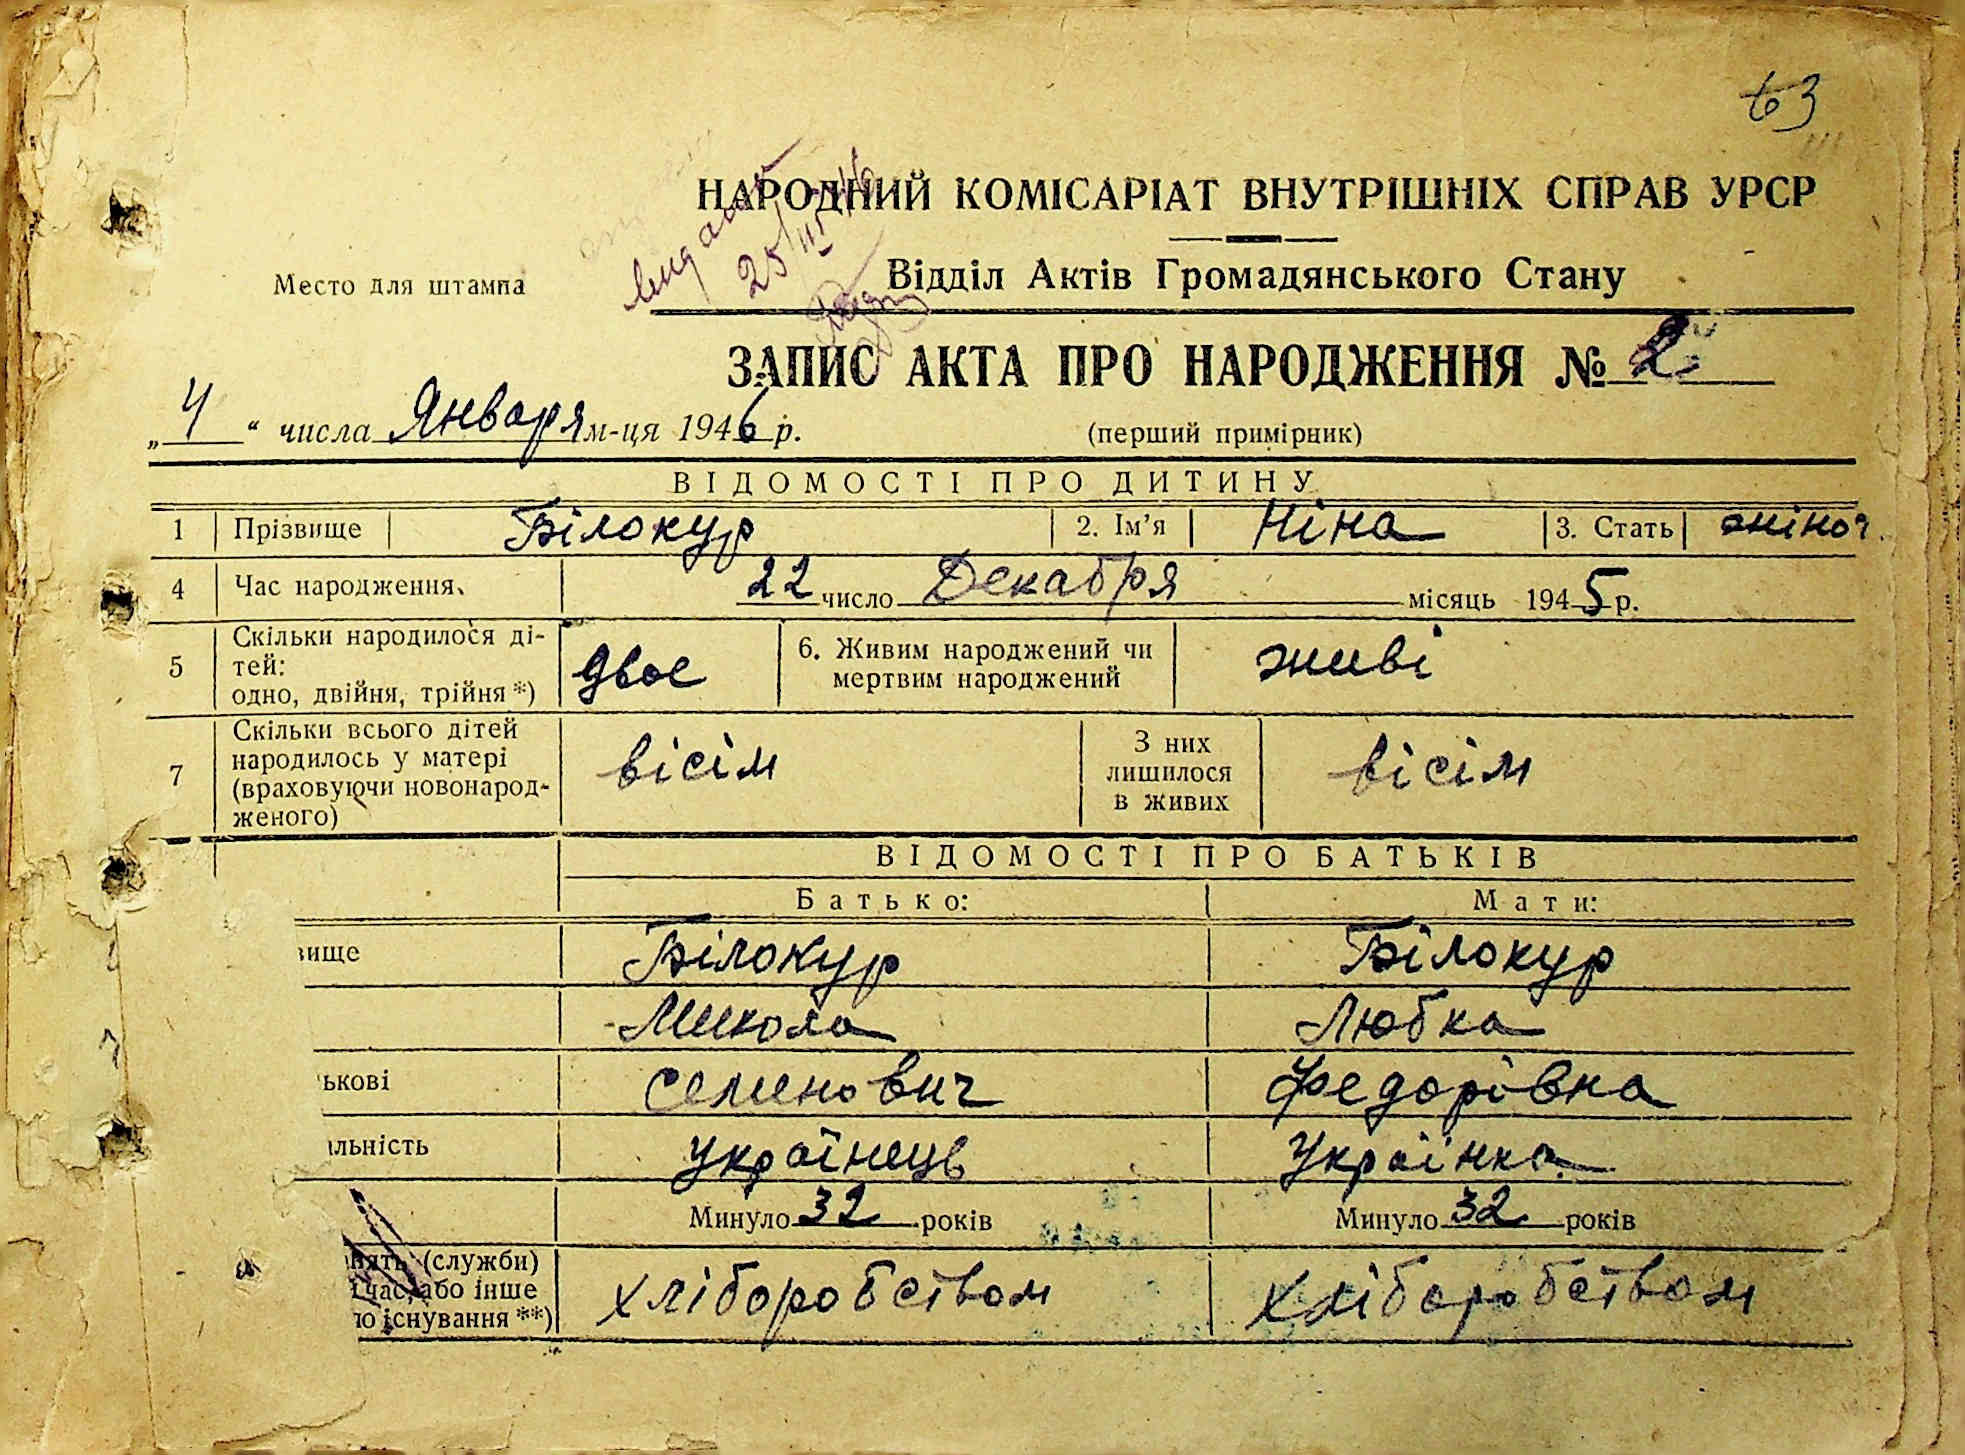 63
НАРОДНИЙ КОМІСАРІАТ ВНУТРІШНІХ СПРАВ УРСР
Место для штампа
25/III 46
Відділ Актів Громадянського Стану
ЗАПИС АКТА ПРО НАРОДЖЕННЯ № 2
„4“ числа Января м-ця 1946 р.
(перший примірник)
ВІДОМОСТІ ПРО ДИТИНУ
1 Прізвище Білокур 2. Ім’я Ніна 3. Стать жіноч.
4 Час народження 22 число Декабря місяць 1945 р.
5 Скільки народилося ді-
тей:
одно, двійня, трійня *)
двое
6. Живим народжений чи
мертвим народжений
живі
7 Скільки всього дітей
народилось у матері
(враховуючи новонарод-
женого)
вісім
З них
лишилося
в живих
вісім
ВІДОМОСТІ ПРО БАТЬКІВ
Батько: Мати:
вище Білокур Білокур
Микола Любка
ькові Семенович Федорівна
альність Українець Українка
Минуло 32 років Минуло 32 років
нять (служби)
час, або інше
ло існування **)
хліборобством хліборобством